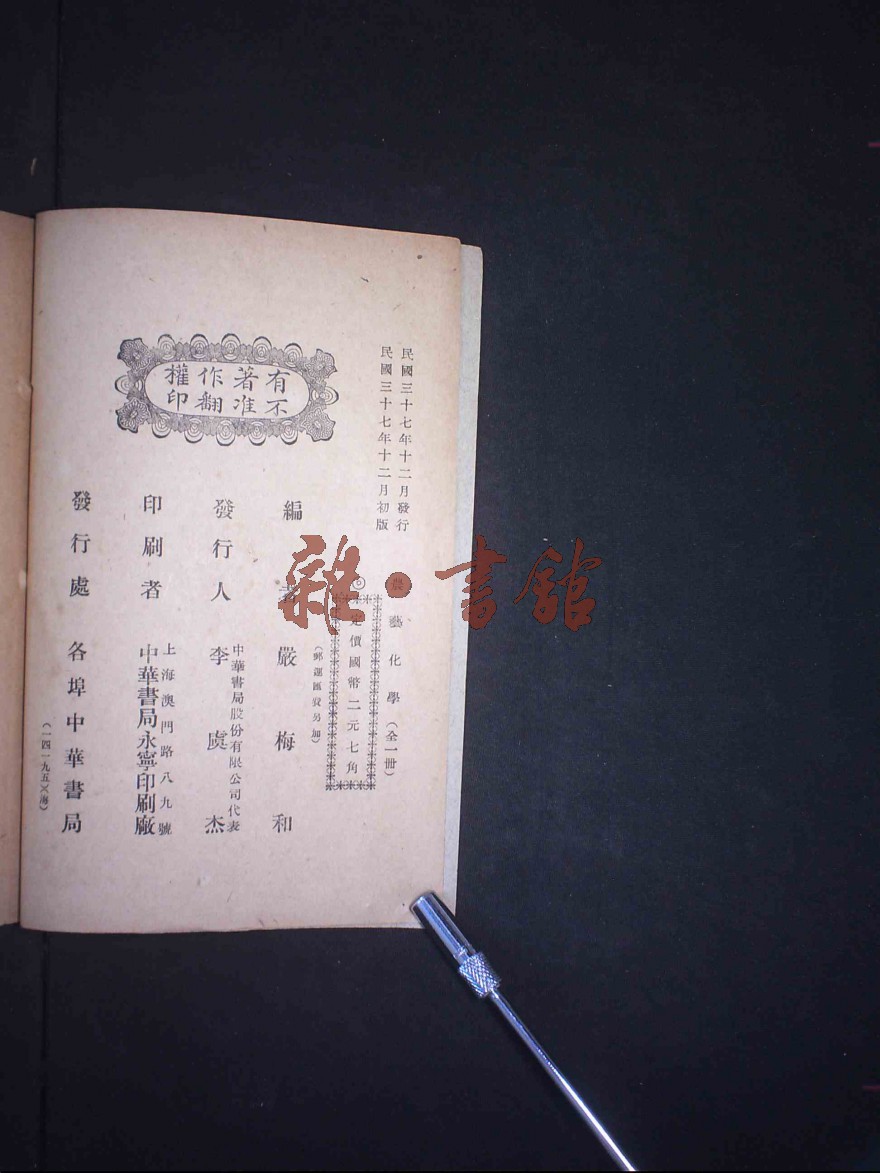 民國三十七年十二月發行
民國三十七年十二月初版
農藝化學(全一册)
◎定價國幣二元七角
(郵運匯費另加)
編者 嚴梅和
發行人 中華書局股份有限公司代表
李虞杰
印刷者 上海澳門路八九號
中華書局永寧印刷廠
發行處 各埠中華書局
(一四一九五)(海)
有著作權
不准翻印
雜·書館